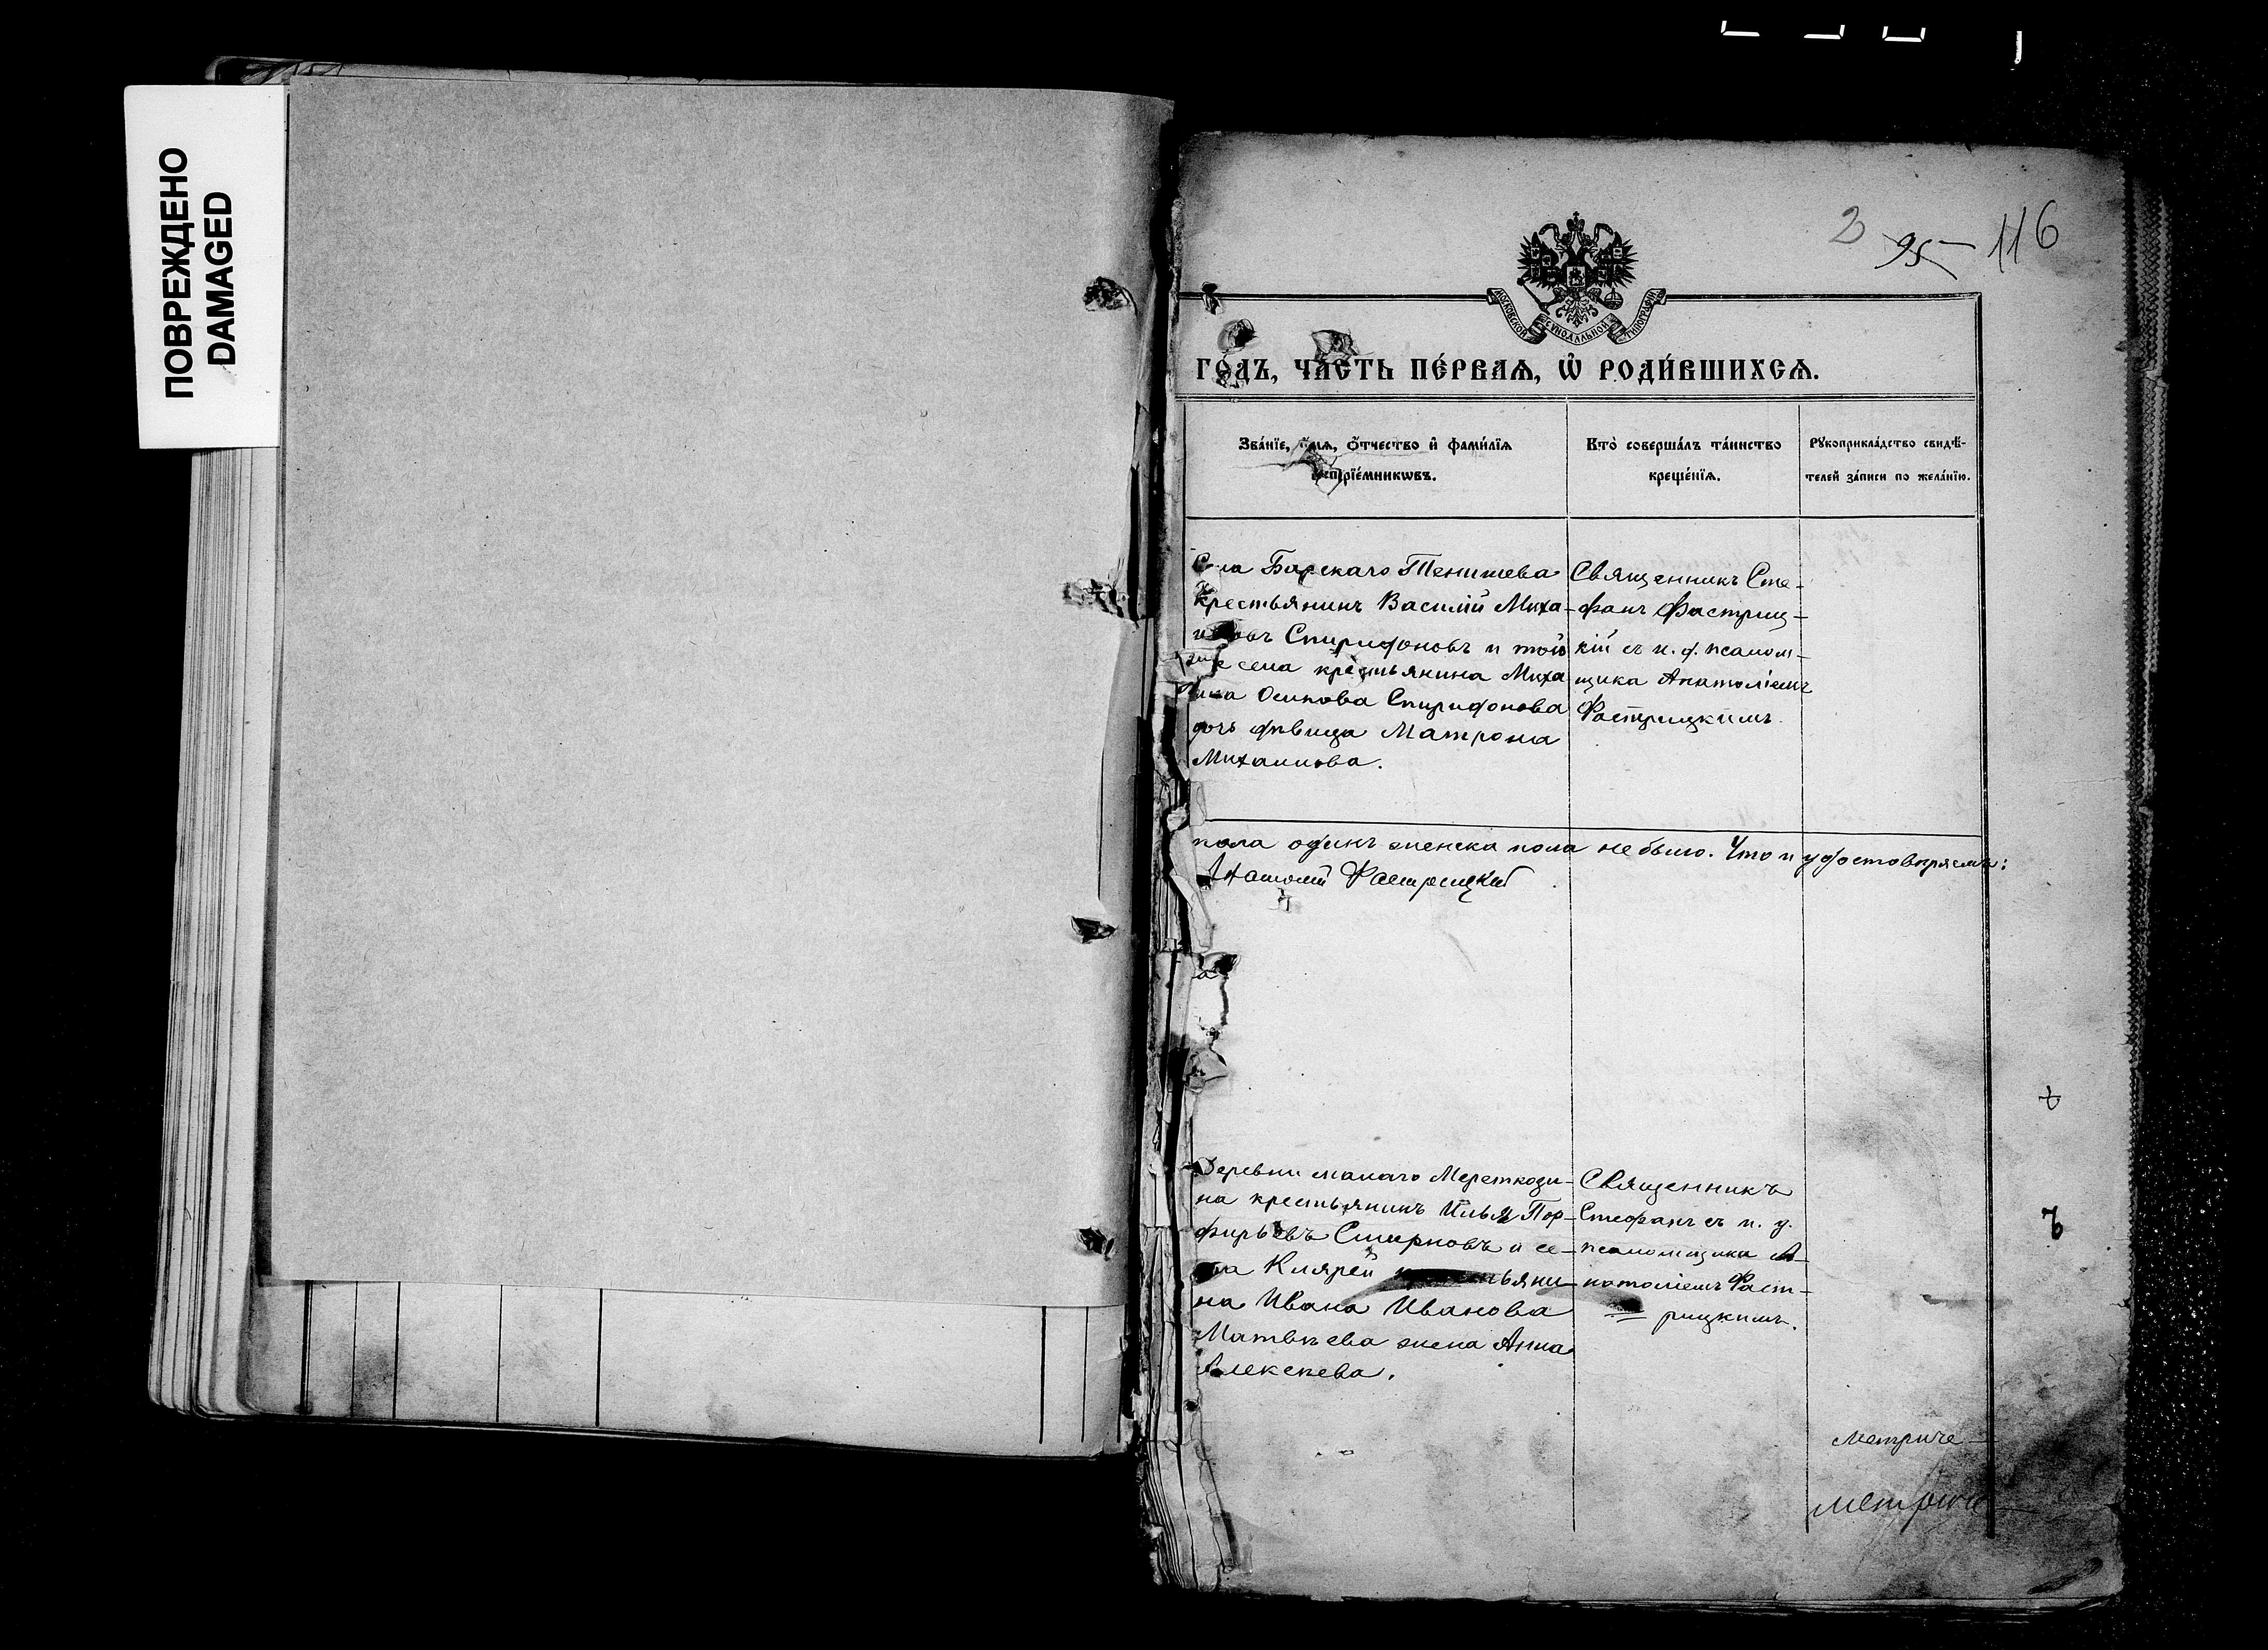 ПОВРЕЖДЕНО
DAMAGED
2 95 116
МОСКОВСКОЙ СѴНОДАЛЬНОЙ ТИПОГРАФІИ
ГО́ДЪ, ЧА́СТЬ ПЕ́РВАѦ, Ѡ҆ РОДИ́ВШИХСѦ.
Зва́нїе, и҆́мѧ, ѻ҆́тчество и҆ фами́лїѧ
воспрїе́мникѡвъ.
Кто̀ соверша́лъ та́инство
креще́нїѧ.
Рꙋкоприкла́дство свидѣ́-
телей за́писи по жела́нїю.
Села Барскаго Тенишева
крестьянинъ Василій Миха-
иловъ Спиридоновъ и той
же села крестьянина Миха
ила Осипова Спиридонова
дочь дѣвица Матрона
Михаилова.
Священникъ Сте-
фанъ Фастриц-
кій съ и. д. псалом-
щика Анатоліемъ
Фастрицкимъ.
пола одинъ женска пола не было. Что и удостовѣряемъ:
Анатолій Фастрицкій
Деревни малаго Мереткози-
на крестьянинъ Илья Пор-
фирьевъ Смирновъ и се-
ла Клярей крестьяни-
на Ивана Иванова
Матвѣева жена Анна
Алексѣева.
Священникъ
Стефанъ съ и. д.
псаломщика А-
натоліемъ Фаст-
рицкимъ.
ъ
Метриче
Метриче